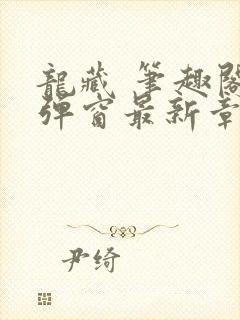 龍藏 筆趣閣
彈窗最新章
尹绮